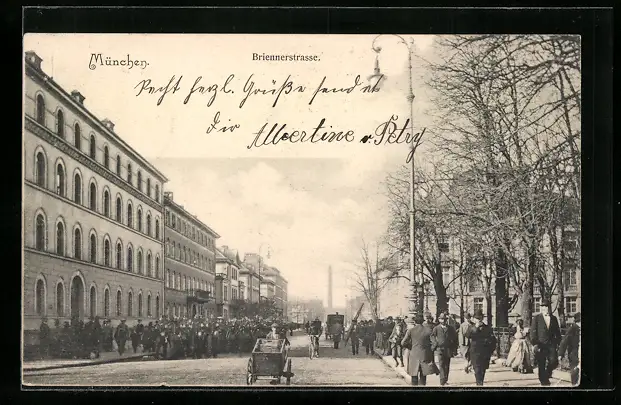 München.
Briennerstrasse.
Recht herzl. Grüße sendet
dir Albertine v. Petry